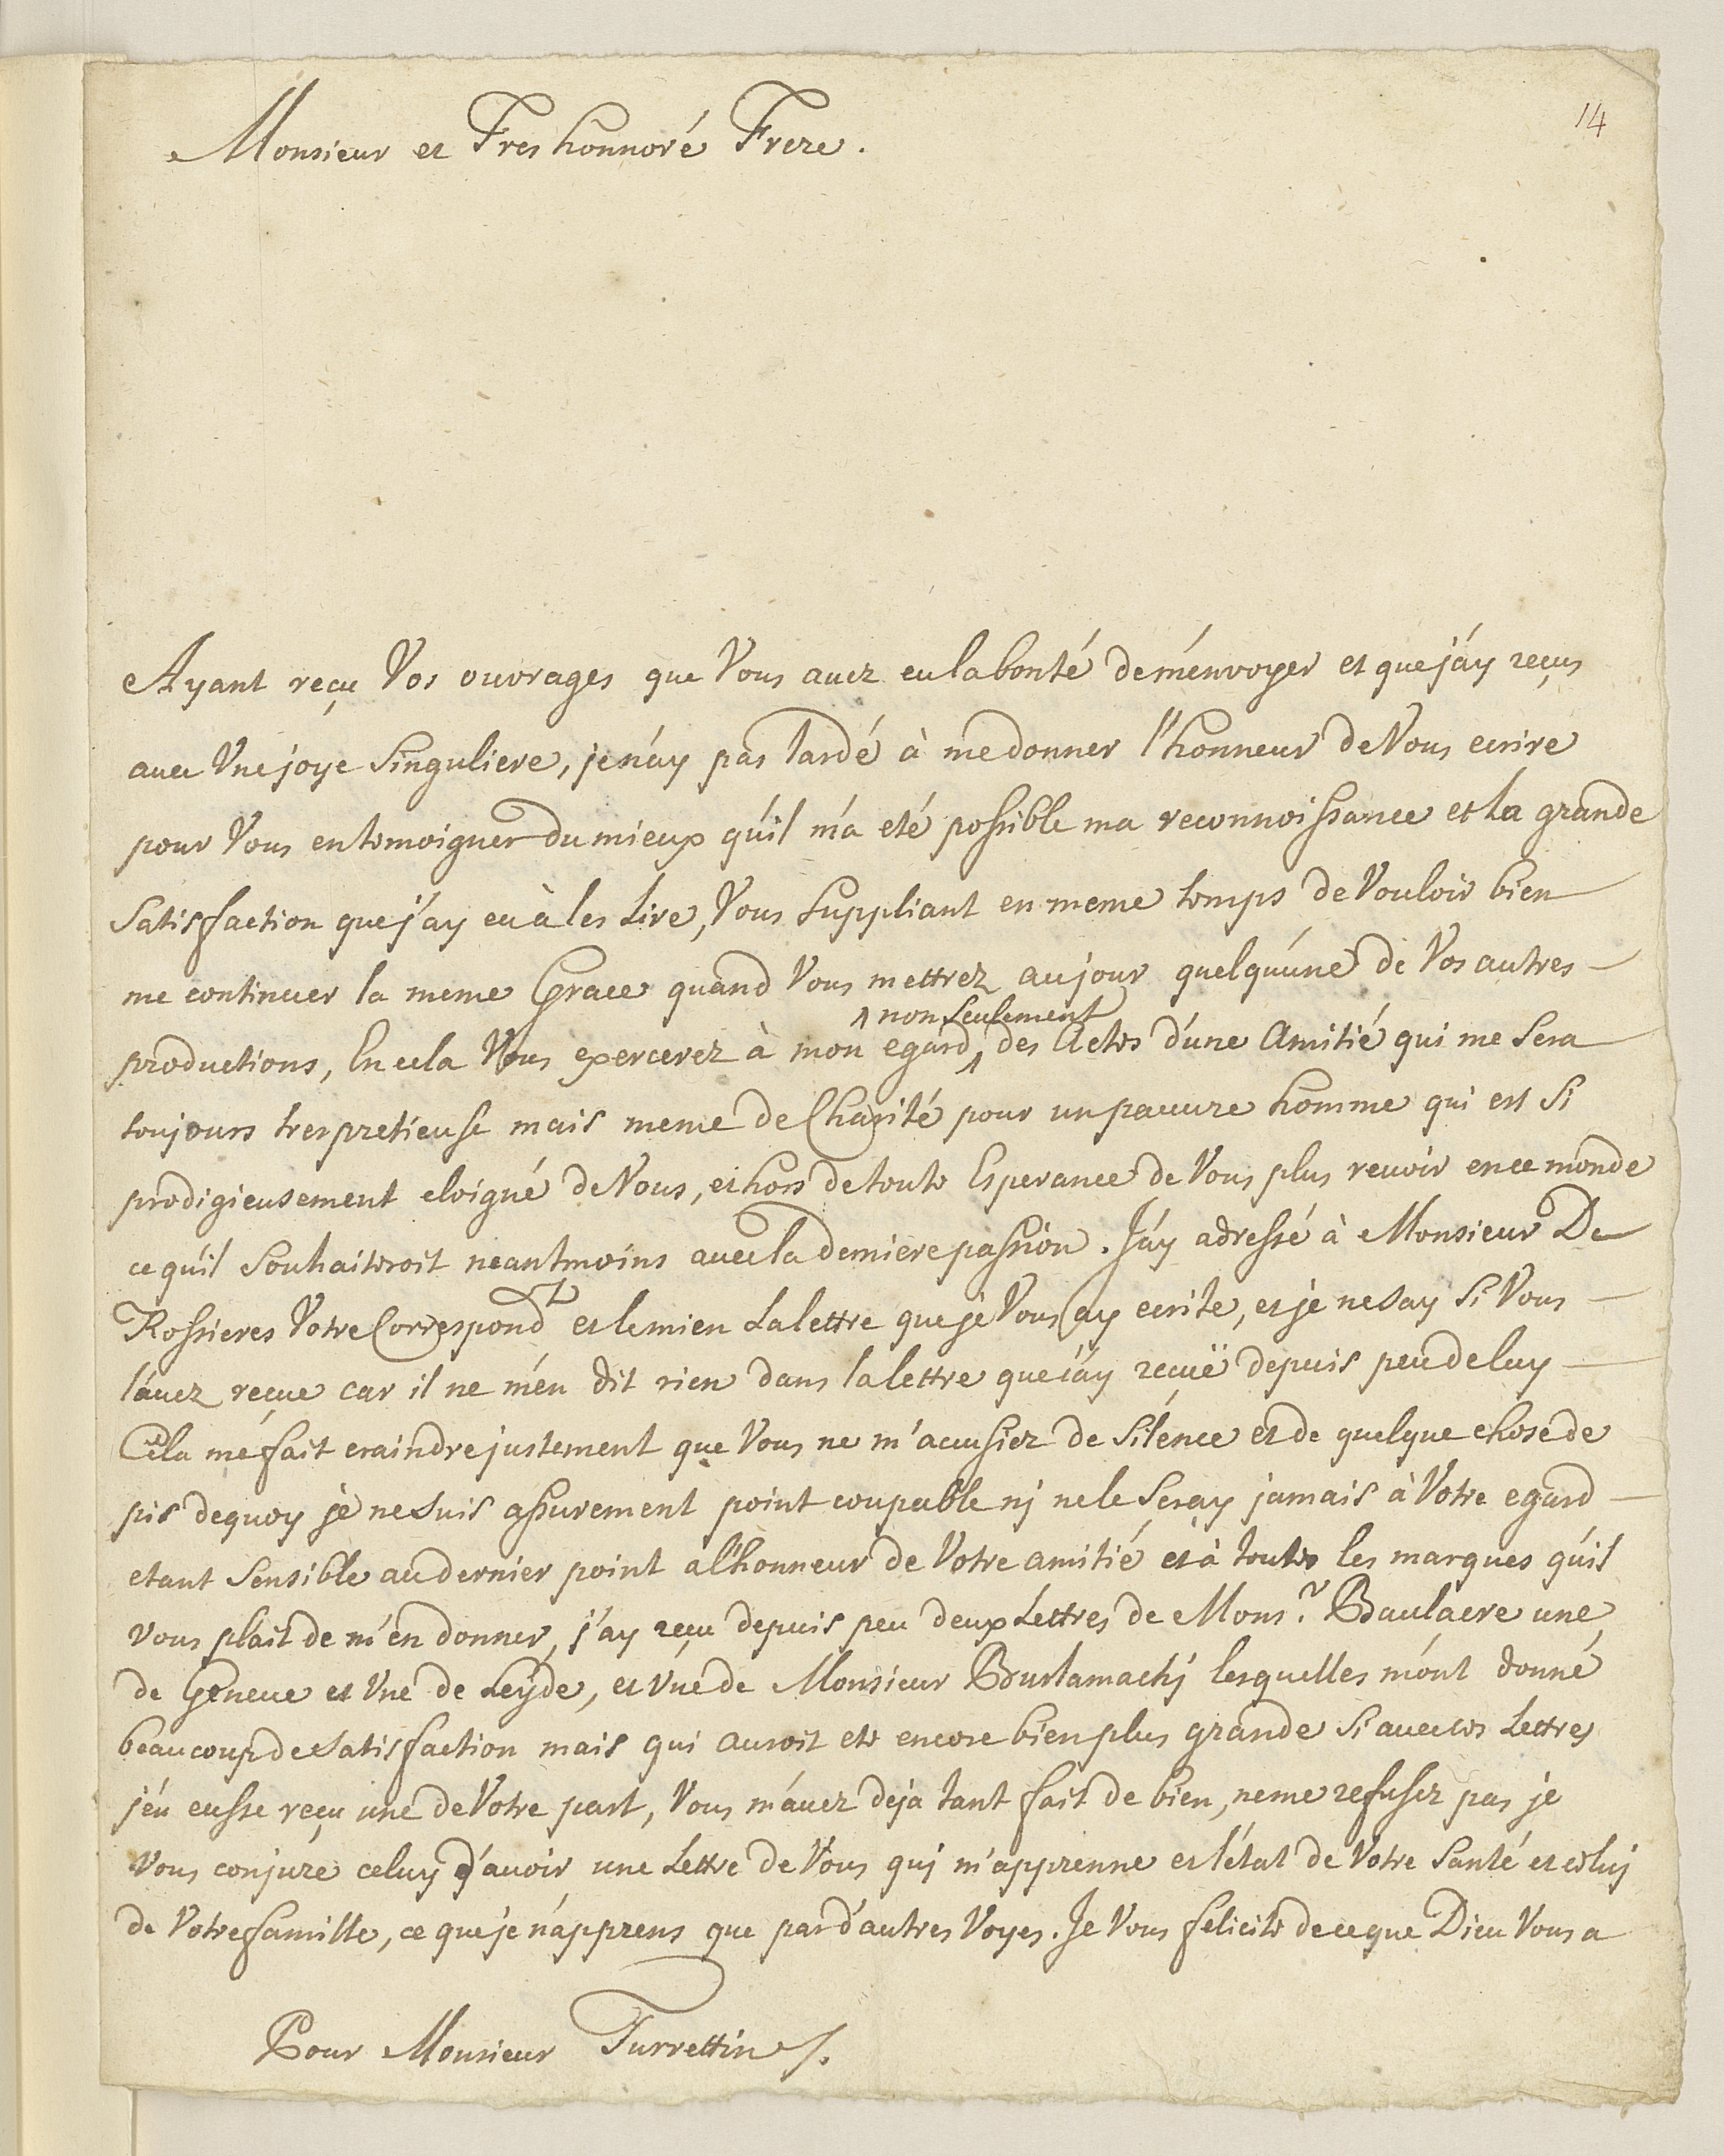 14
Monsieur et Tres honnoré Frere.
Ayant reçu Vos ouvrages que Vous avez eu la bonté de m'envoyer et que j'ay reçus
avec Une joye singuliere, je n'ay pas tardé à me donner l'honneur de Vous ecrire
pour Vous en temoigner du mieux qu'il m'a eté possible ma reconnoissance et la grande
satisfaction que j'ay eu à les Lire, Vous suppliant en meme temps de Vouloir bien
me continuer la meme Grace quand Vous mettrez au jour quelqu'une de Vos autres
non seulement
productions, En cela Vous exercerez à mon egard des Actes d'une Amitié qui me sera
toujours tres pretieuse mais meme de Charité pour un pauure homme qui est si
prodigieusement eloigné de Vous, et hors de toute Esperance de Vous plus reuoir en ce monde
ce qu'il souhaiteroit neantmoins auec la derniere passion. J'ay adressé à Monsieur De
Rossieres Votre Correspondt et le mien La lettre que je Vous ay ecrite, et je ne say si Vous
l'auez reçue car il ne m'en dit rien dans la lettre que i'ay reçuë depuis peu de luy
Cela me fait craindre justement que Vous ne m'accusiez de silence et de quelque chose de
pis dequoy je ne suis assurement point coupable nj ne le seray jamais à Votre egard
etant sensible au dernier point a l'honneur de Votre amitié et à toutes les marques qu'il
vous plait de m'en donner, j'ay reçu depuis peu deux Lettres de Monsr. Baulacre une
de Geneue et Une de Leyde, et Une de Monsieur Burlamachj lesquelles m'ont donné
beaucoup de satisfaction mais qui auroit eté encore bien plus grande si auec ces Lettres
j'en eusse reçu une de Votre part, Vous m'auez deja tant fait de bien, ne me refusez pas je
vous conjure celuy d'auoir une Lettre de Vous quj m'apprenne et l'état de Votre santé et celuj
de Votre famille, ce que je n'apprens que par d'autres Voyes. Je Vous felicite de ce que Dieu Vous a
Pour Monsieur Turrettin /.